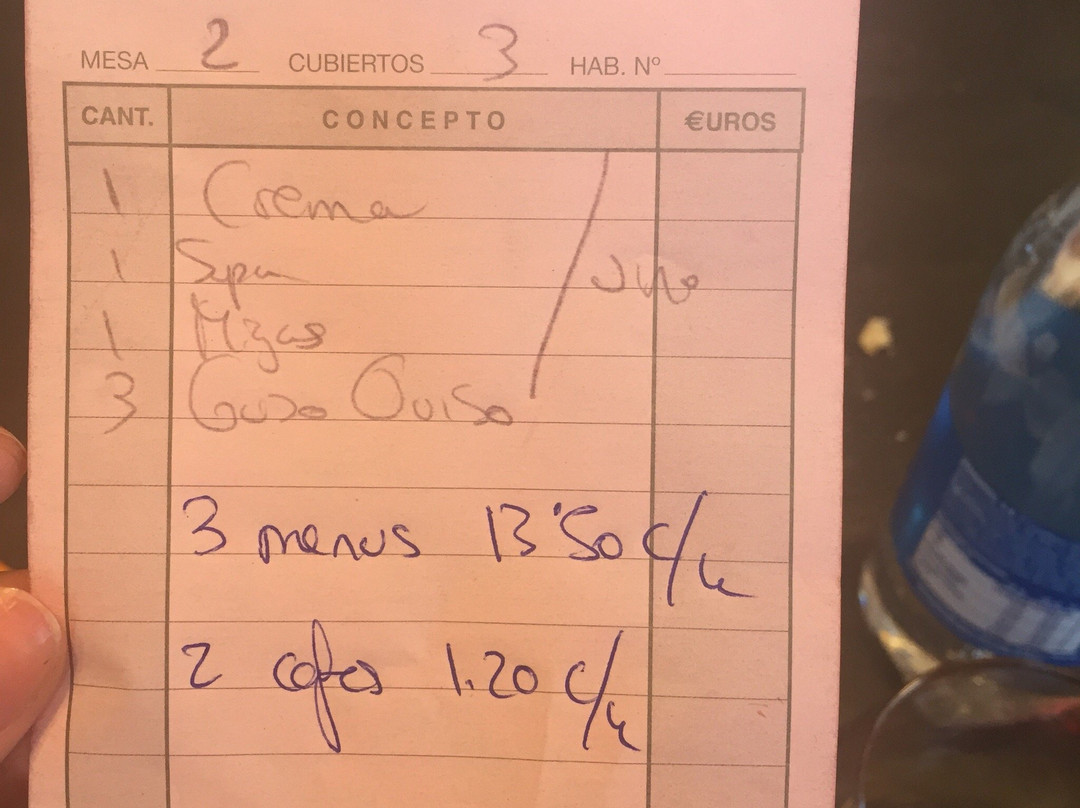 MESA 2 CUBIERTOS 3 HAB. Nº
CANT. CONCEPTO €UROS
1 Crema
1 Sopa
1 Migas
3 Guiso
3 menus 13'50 c/u
2 cafes 1.20 c/u